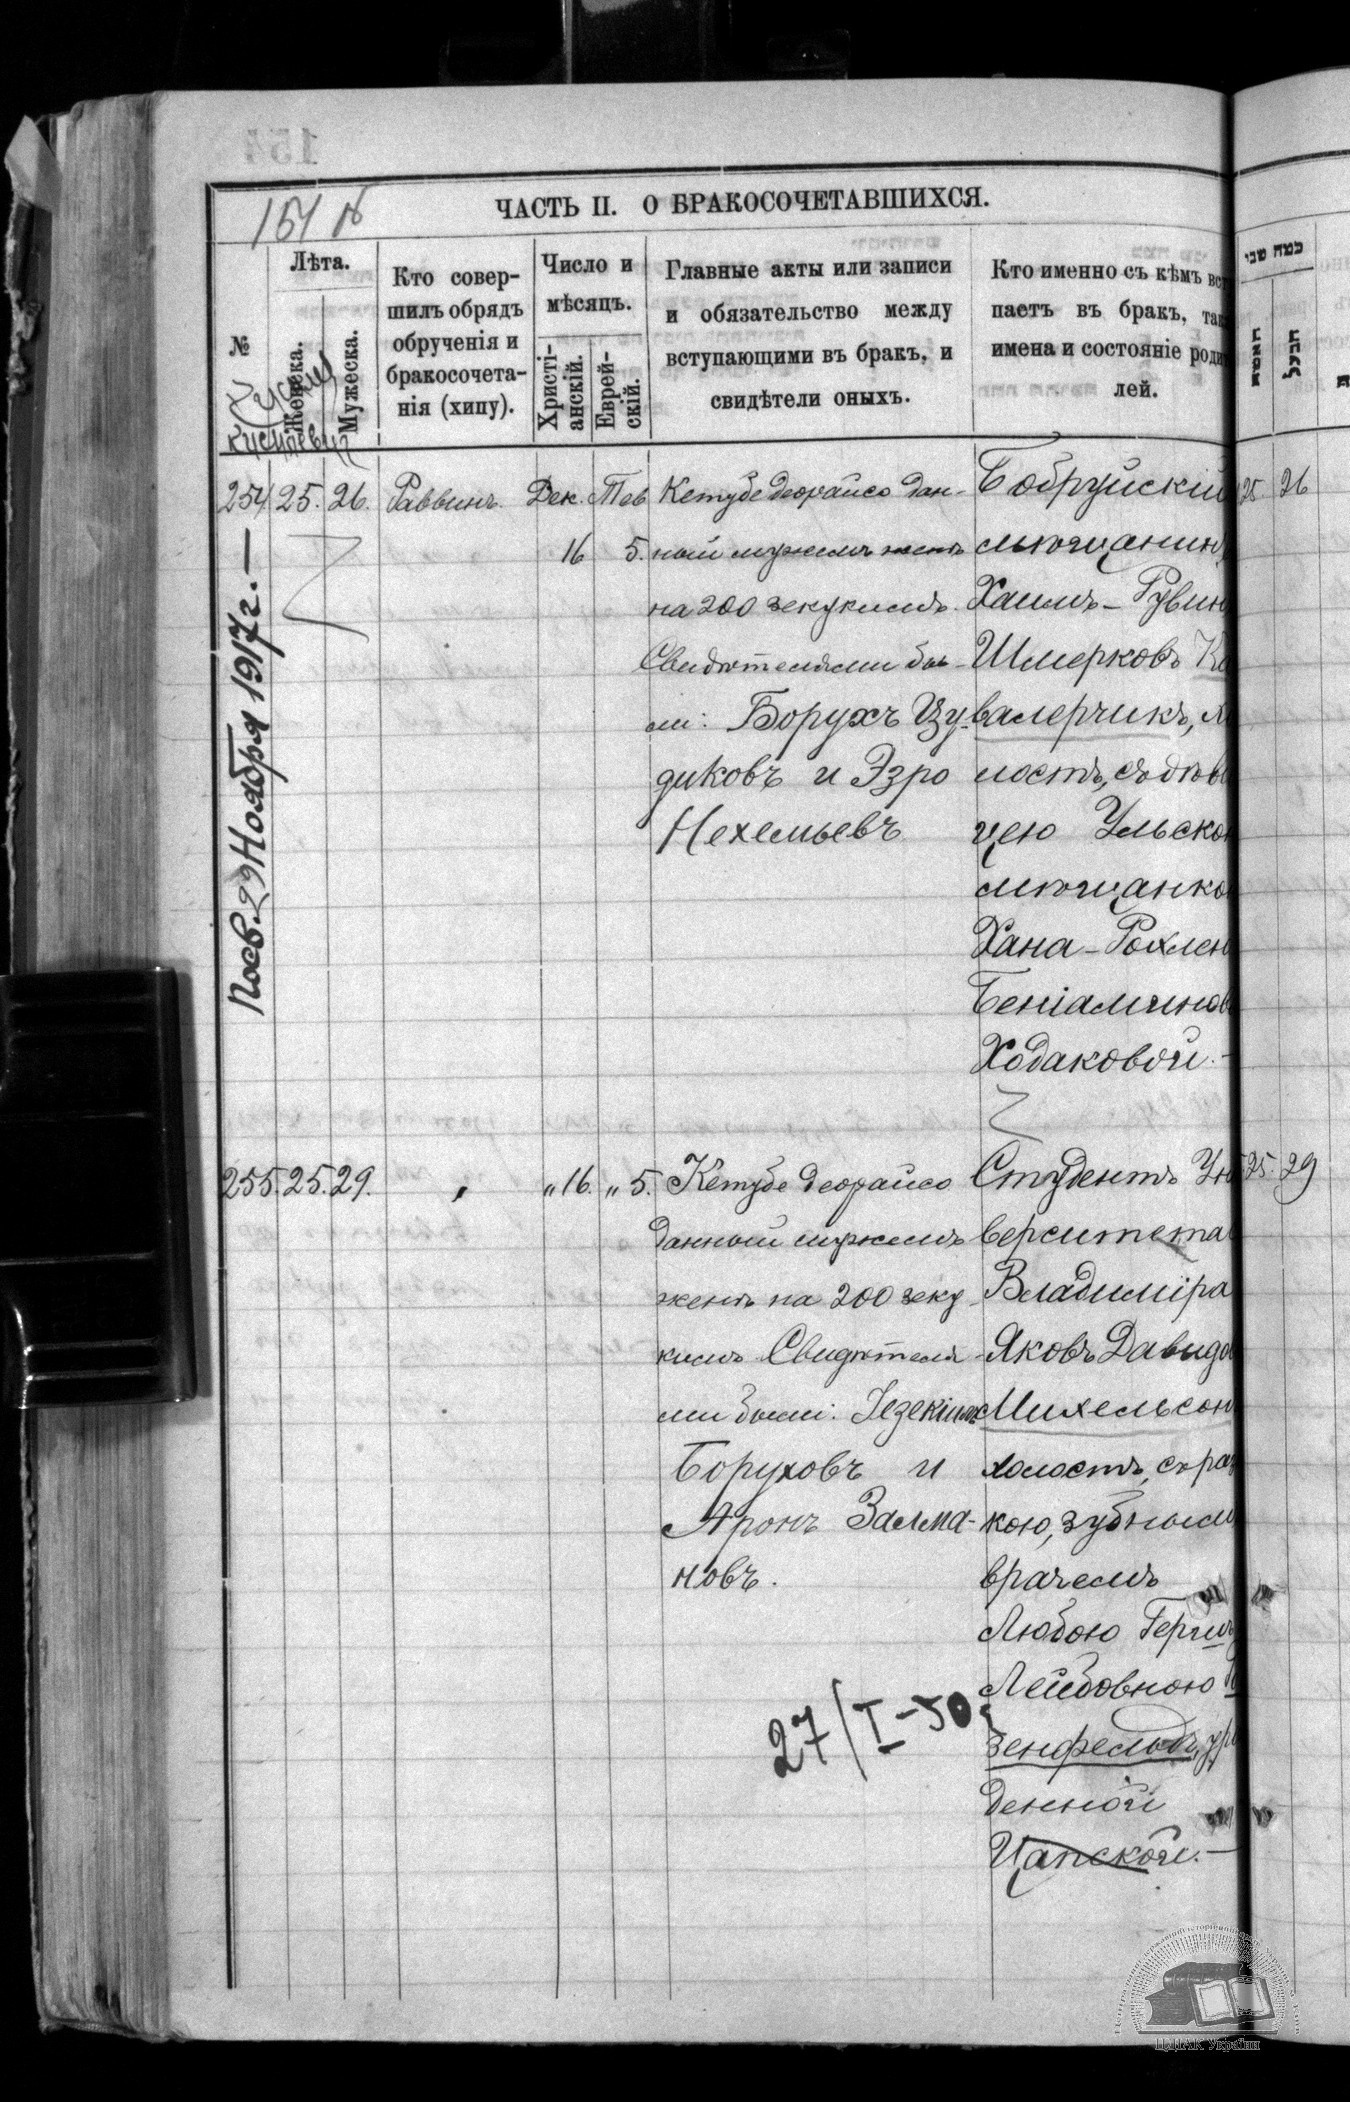 154 об
ЧАСТЬ II. О БРАКОСОЧЕТАВШИХСЯ.
№
Лѣта.
Женска.
Мужеска.
Кто совер-
шилъ обрядъ
обрученія и
бракосочета-
нія (хипу).
Число и
мѣсяцъ.
Христі-
анскій.
Еврей-
скій.
Главные акты или записи
и обязательство между
вступающими въ бракъ, и
свидѣтели оныхъ.
Кто именно съ кѣмъ всту
паетъ въ бракъ, так
имена и состояніе роди
лей.
כמה שני
האשה
הבעל
254. 25. 26. Раввинъ. Дек. Тев
16 5.
Кетубе деорайсо дан-
ный мужемъ женѣ
на 200 зекукимъ.
Свидѣтелями бы-
ли: Борухъ Цу-
диковъ и Эзро
Нехемьевъ
Бобруйскій
мѣщанин
Хаимъ-Рувин
Шмерковъ Ко
валерчикъ, хо
лостъ, съ дѣви
цею Ульско
мѣщанко
Хана-Рохлею
Беніаминов
Ходаковой.-
25 26
Посв. 29 Ноября 1917 г.-
255. 25. 29. " "16. "5.
Кетубе деорайсо
данный мужемъ
женѣ на 200 зеку-
кимъ. Свидѣтеля-
ми были: Іезекіиль
Боруховъ и
Аронъ Залма-
новъ.
Студентъ Уни
верситета
Владиміра
Яковъ Давидо
Михельсон
холостъ, съ раз
кою, зубным
врачемъ
Любою Герш
Лейбовною Ро
зенфельдъ, уро
денной
Цапской.-
25. 29
27/I-50
ЦДІАК України